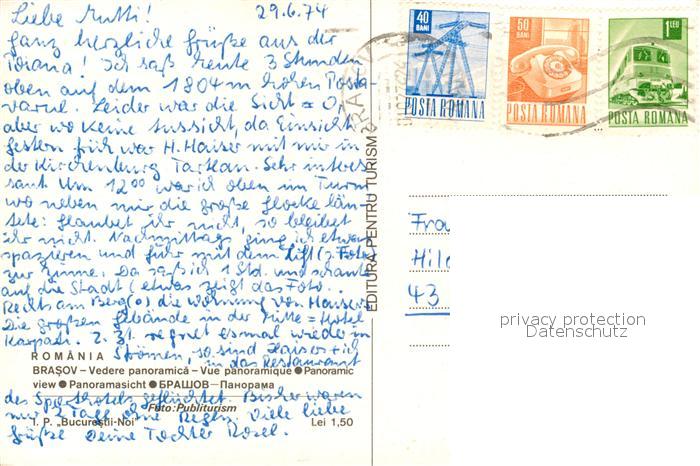 Liebe Mutti! 29.6.74
ganz herzliche Grüße aus der
Poiana! Ich saß heute 3 Stunden
oben auf dem 1804 m hohen Posta-
varul. Leider war die Sicht = 0,
aber wo keine Aussicht, da Einsicht
gestern früh war H. Hauser mit mir in
der Kirchenburg Tartlau. Sehr interes-
sant. Um 12⁰⁰ war ich oben im Turm
wo neben mir die große Glocke läu-
tete: Glaubet ihr nicht, so bleibet
ihr nicht. Nachmittags ging ich etwas
spazieren und fuhr mit dem Lift (s. Foto)
zur Zinne. Da saß ich 1 Std. und schaute
auf die Stadt (etwas zeigt das Foto.
Rechts am Berg (o) die Wohnung von Hauser
Die großen Gebäude in der Mitte = Hotel
Karpati. Z. Zt. regnet es mal wieder in
Strömen, so sind Hausers + ich
in das Restaurant
des Sporthotels geflüchtet. Bisher waren
nur 2 Tage ohne Regen. Viele liebe
Grüße Deine Tochter Rosel.
ROMÂNIA
BRAŞOV – Vedere panoramică – Vue panoramique ● Panoramic
view ● Panoramasicht ● БРАШОВ – Панорама
Foto: Publiturism
I. P. „Bucureştii-Noi" Lei 1,50
EDITURA PENTRU TURISM
40 BANI
POSTA ROMANA
50 BANI
POSTA ROMANA
1 LEU
POSTA ROMANA
Frau
43
privacy protection
Datenschutz